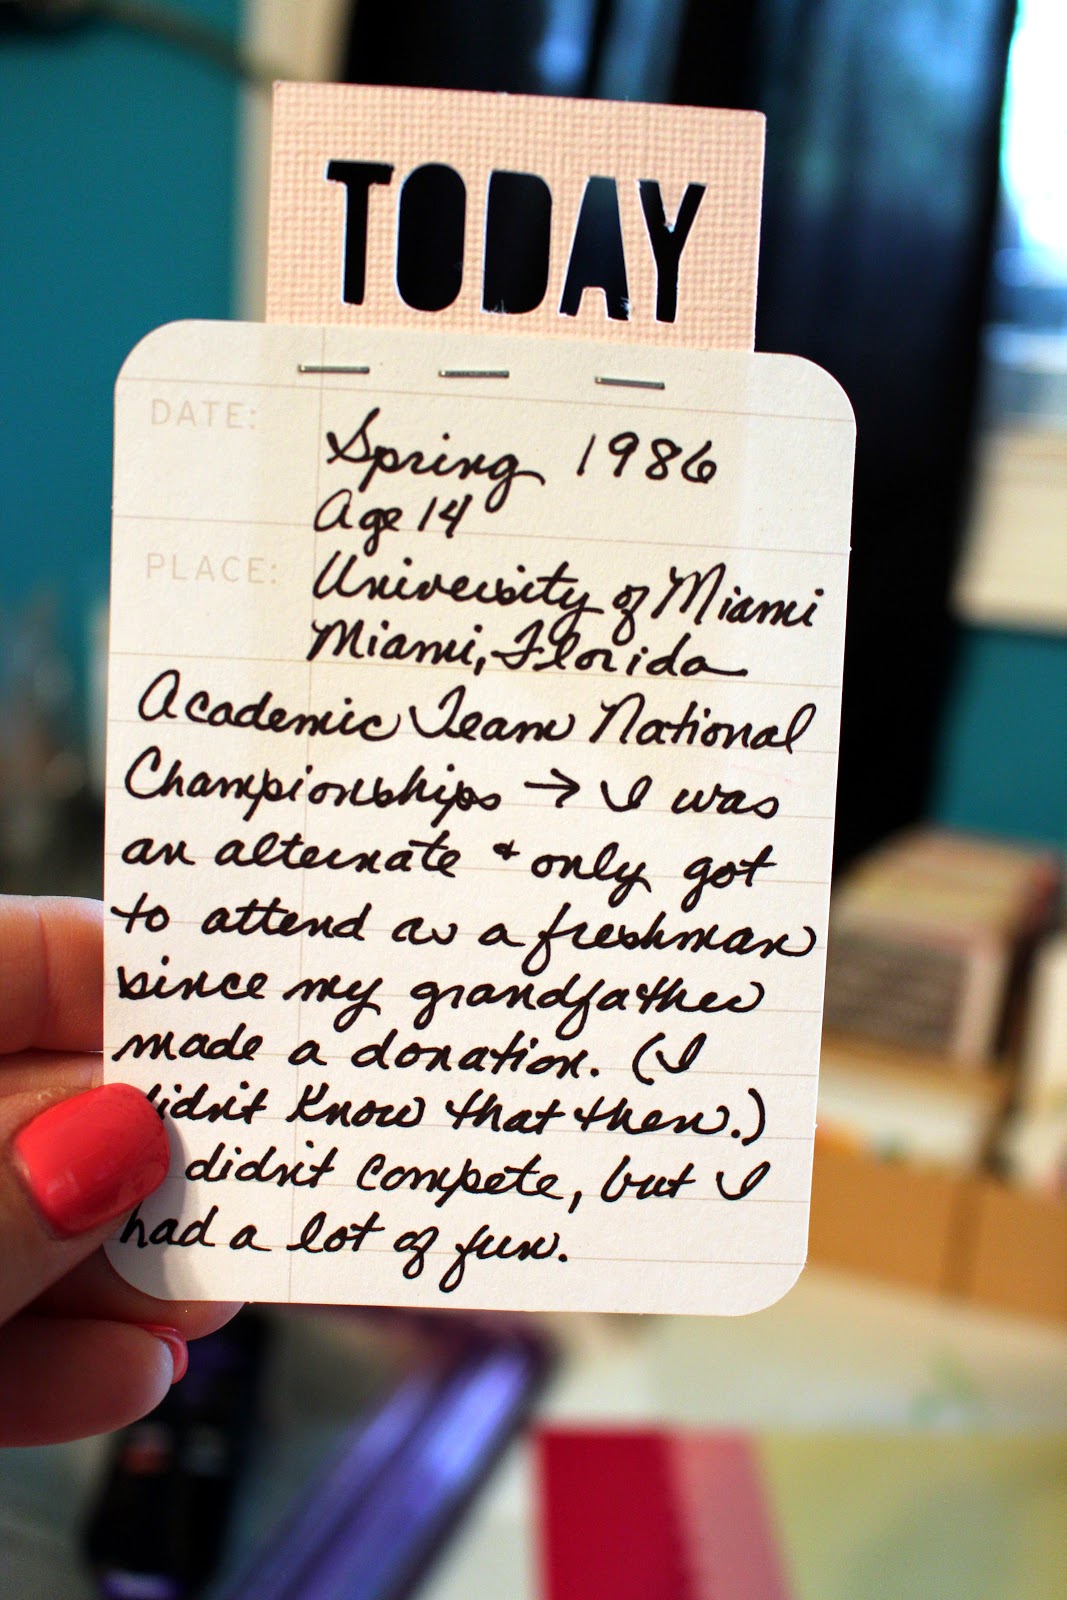 TODAY
DATE: Spring 1986
Age 14
PLACE: University of Miami
Miami, Florida
Academic Team National
Championships → I was
an alternate + only got
to attend as a freshman
since my grandfather
made a donation. (I
didn't know that then.)
didn't compete, but I
had a lot of fun.